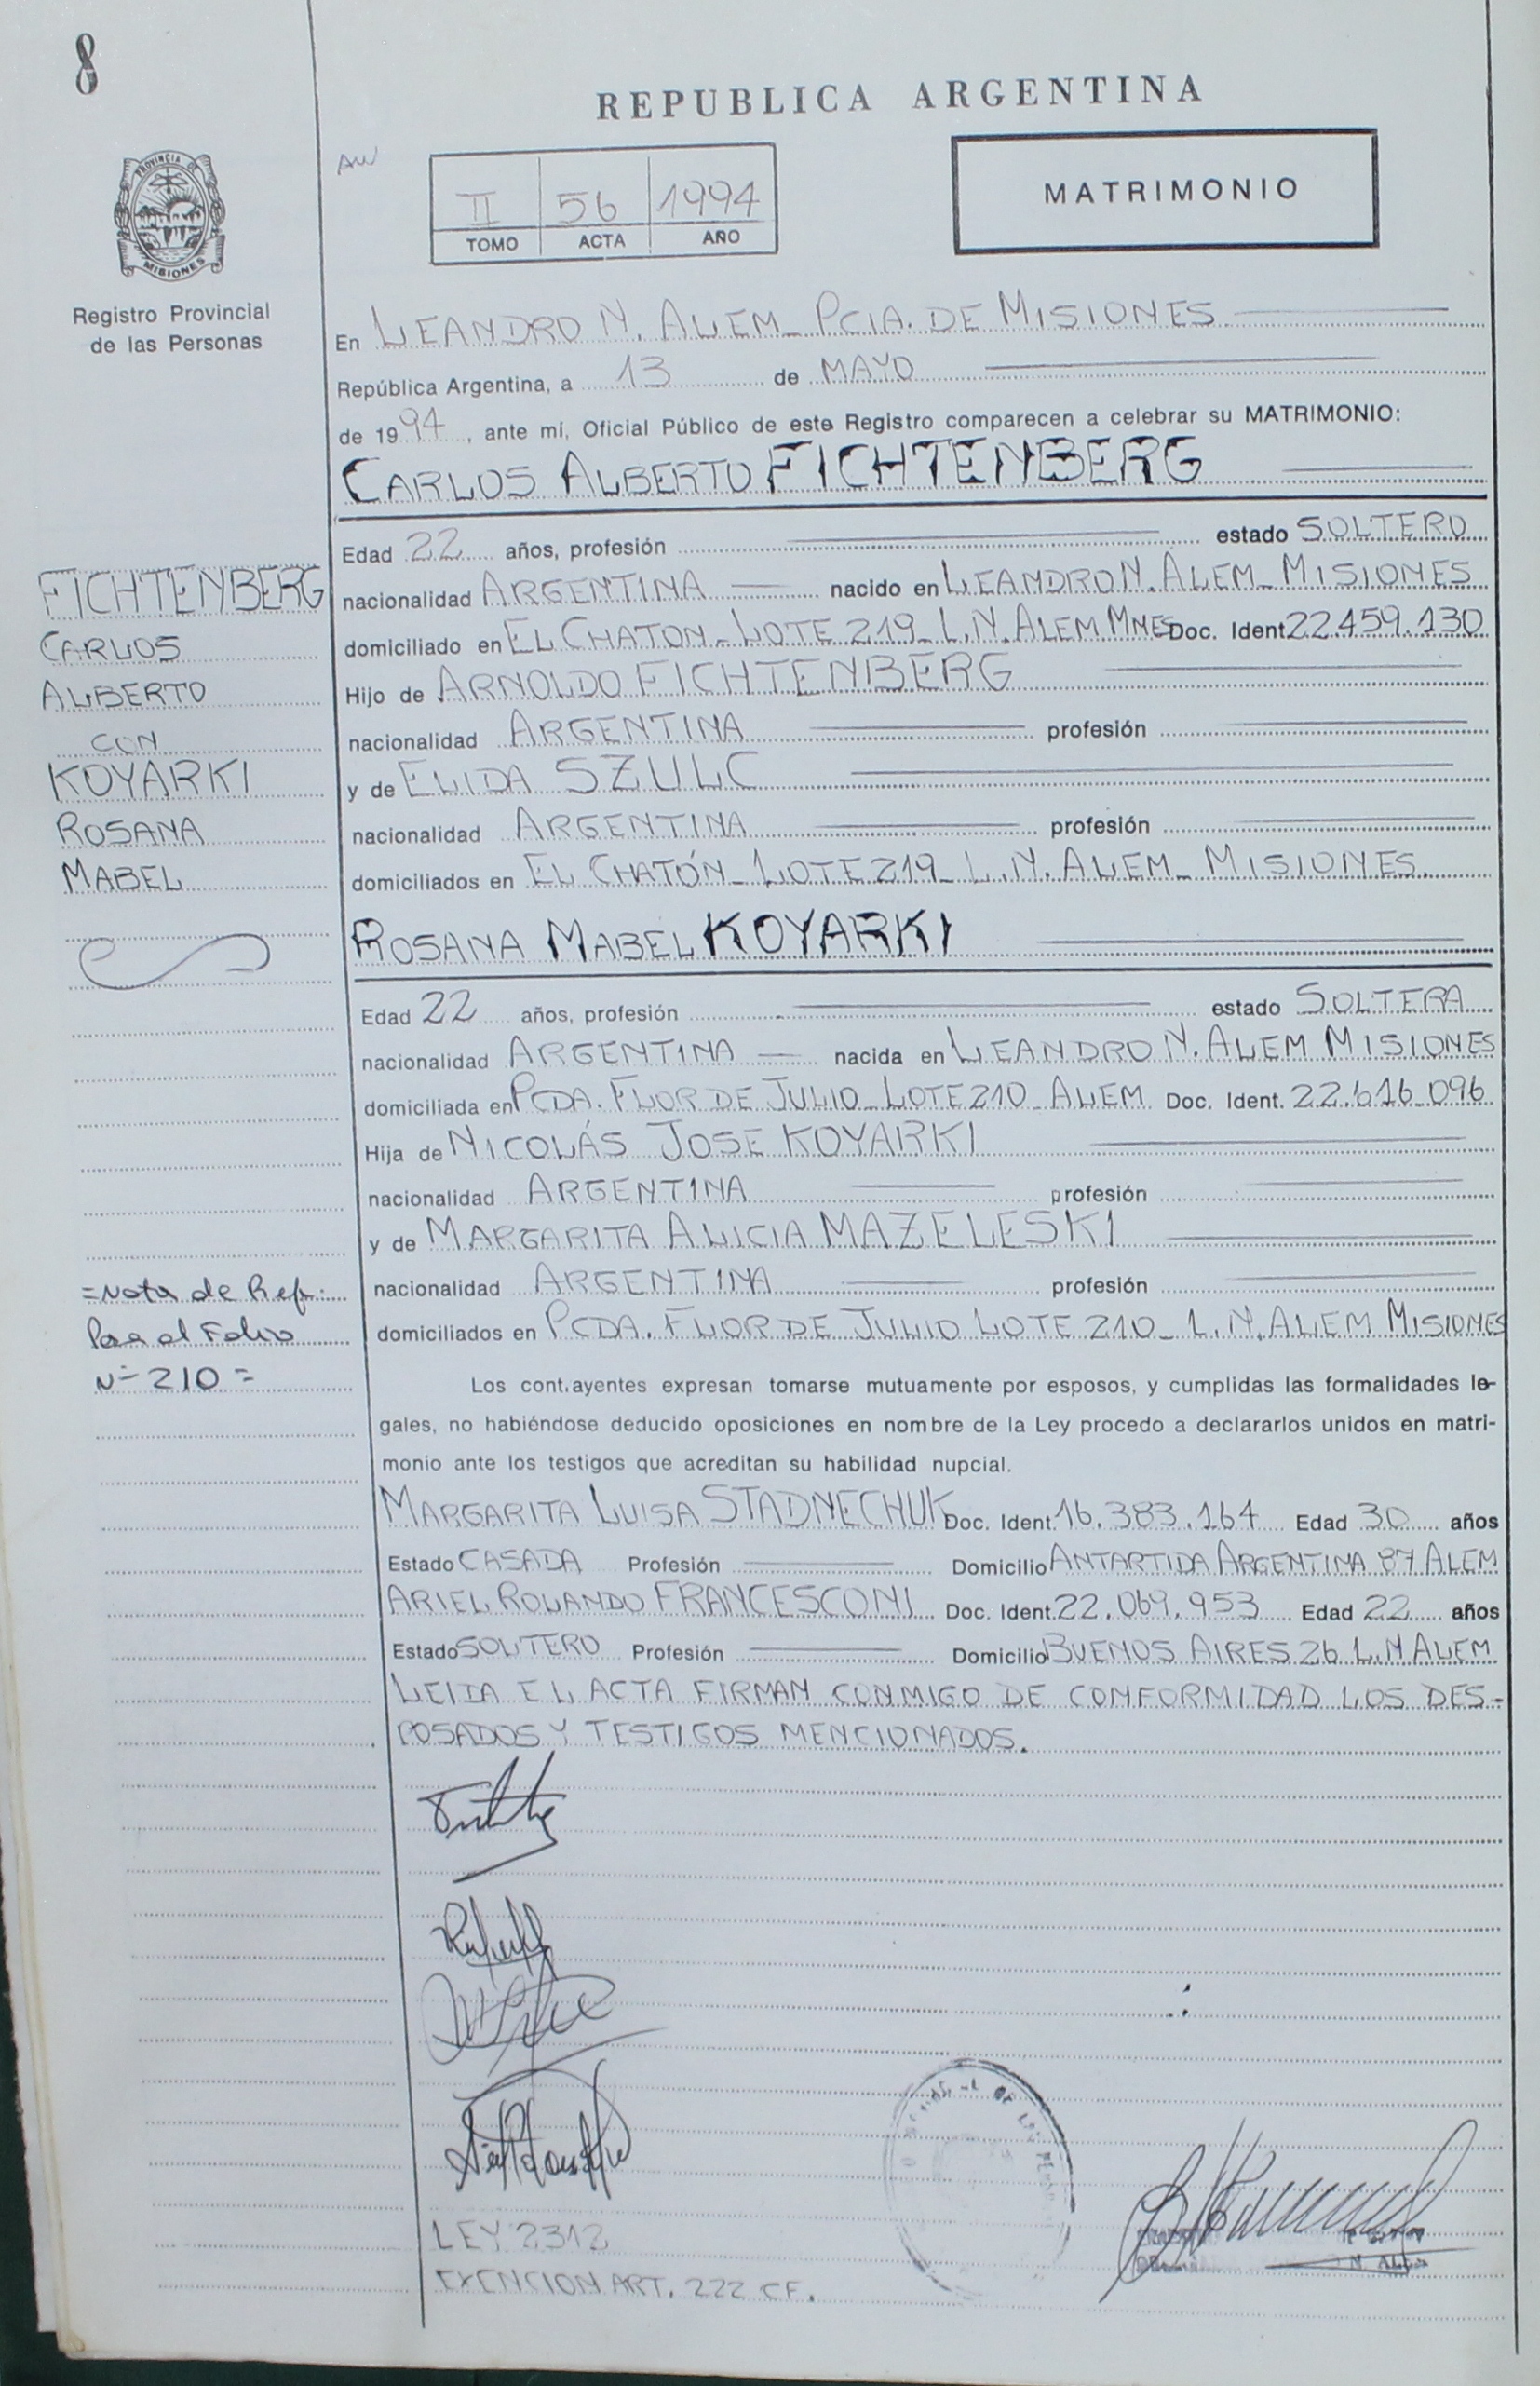 8
REPUBLICA ARGENTINA
AW
II 56 1994
TOMO ACTA AÑO
MATRIMONIO
PROVINCIA DE
MISIONES
Registro Provincial
de las Personas
En LEANDRO N. ALEM_ PCIA. DE MISIONES
República Argentina, a 13 de MAYO
de 1994, ante mí, Oficial Público de este Registro comparecen a celebrar su MATRIMONIO:
CARLOS ALBERTO FICHTENBERG
Edad 22 años, profesión estado SOLTERO
nacionalidad ARGENTINA nacido en LEANDRO N. ALEM_ MISIONES
domiciliado en EL CHATON_ LOTE 219_ L.N. ALEM MNES Doc. Ident. 22.459.130
Hijo de ARNOLDO FICHTENBERG
nacionalidad ARGENTINA profesión
y de ELIDA SZULC
nacionalidad ARGENTINA profesión
domiciliados en EL CHATÓN_ LOTE 219_ L.N. ALEM_ MISIONES.
FICHTENBERG
CARLOS
ALBERTO
CON
KOYARKI
ROSANA
MABEL
ROSANA MABEL KOYARKI
Edad 22 años, profesión estado SOLTERA
nacionalidad ARGENTINA nacida en LEANDRO N. ALEM MISIONES
domiciliada en PCDA. FLOR DE JULIO_ LOTE 210_ ALEM Doc. Ident. 22.616.096
Hija de NICOLÁS JOSE KOYARKI
nacionalidad ARGENTINA profesión
y de MARGARITA ALICIA MAZELESKI
nacionalidad ARGENTINA profesión
domiciliados en PCDA. FLOR DE JULIO LOTE 210_ L.N. ALEM MISIONES
=Nota de Ref:
Pasa al Folio
Nº 210=
Los cont.ayentes expresan tomarse mutuamente por esposos, y cumplidas las formalidades le-
gales, no habiéndose deducido oposiciones en nombre de la Ley procedo a declararlos unidos en matri-
monio ante los testigos que acreditan su habilidad nupcial.
MARGARITA LUISA STADNECHUK Doc. Ident. 16.383.164 Edad 30 años
Estado CASADA Profesión Domicilio ANTARTIDA ARGENTINA 87 ALEM
ARIEL ROLANDO FRANCESCONI Doc. Ident. 22.069.953 Edad 22 años
Estado SOLTERO Profesión Domicilio BUENOS AIRES 26 L.N ALEM
LEIDA EL ACTA FIRMAN CONMIGO DE CONFORMIDAD LOS DES-
POSADOS Y TESTIGOS MENCIONADOS.
LEY 2312
EXENCION ART. 222 CF.